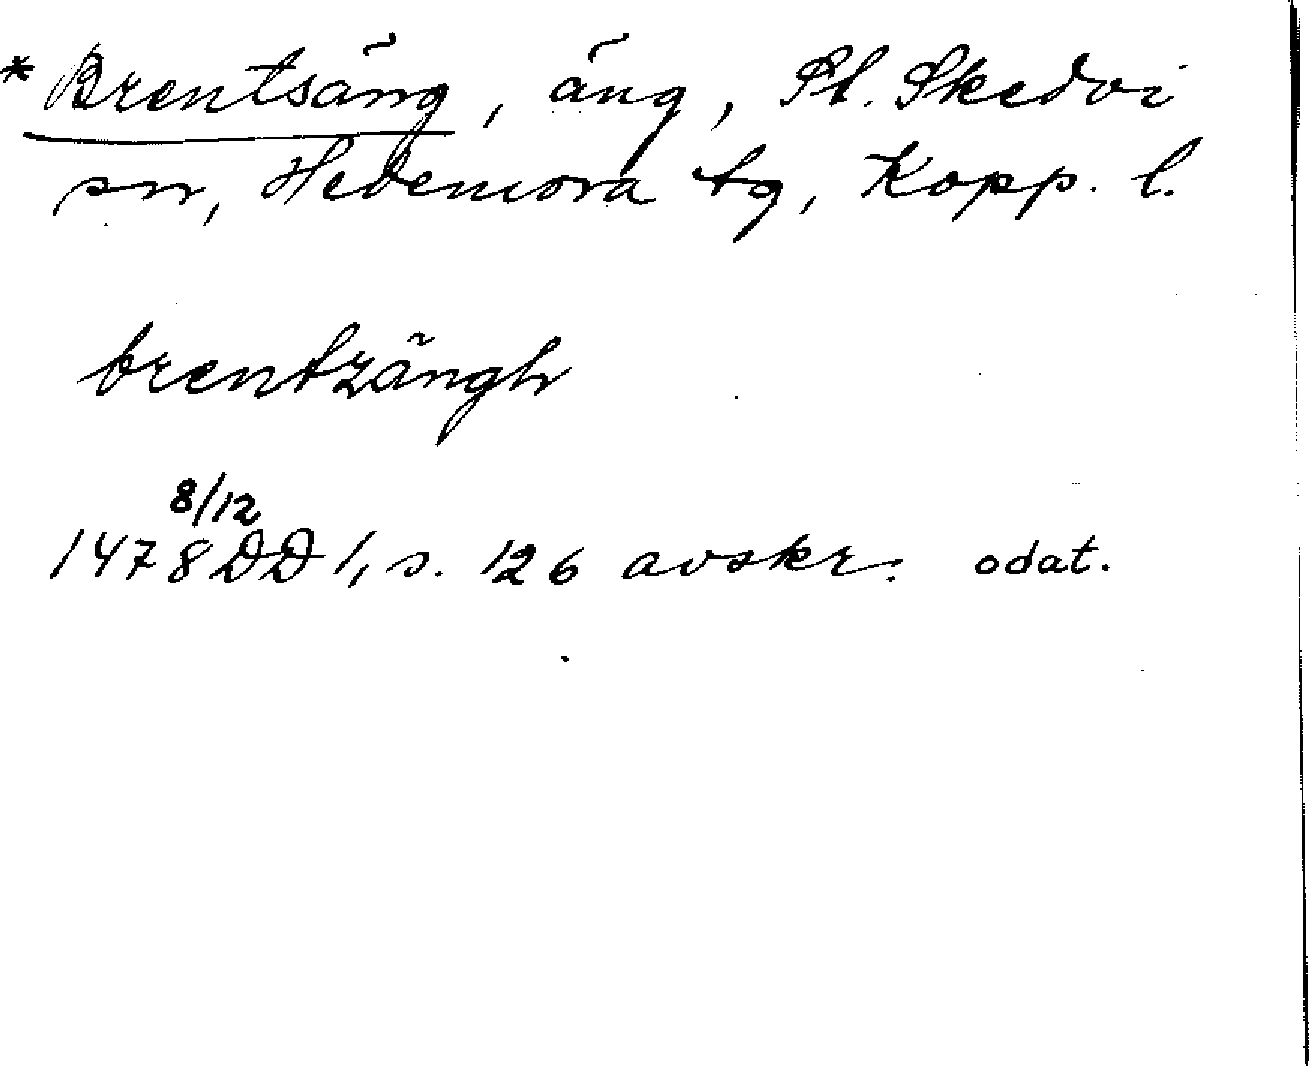 * Brentsäng, äng, St. Skedvi
sn, Hedemora tg, Kopp. l.
brentzängh
8/12
1478 DD 1, s. 126 avskr. odat.